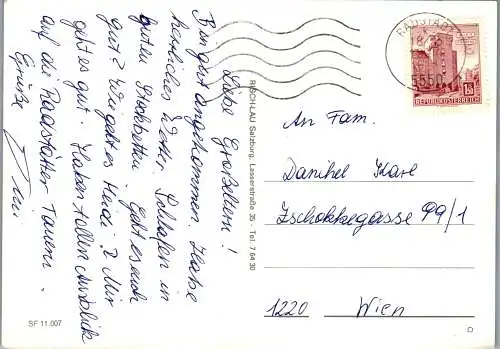 Liebe Großeltern!
Bin gut angekommen. Habe
herrliches Wetter. Schlafen in
guten Stockbetten. Geht es euch
gut? Wie geht es Heidi? Mir
geht es gut. Haben tollen Ausblick
auf die Radstätter Tauern.
Grüße
RISCHLAU Salzburg, Lasserstraße 35 - Tel. 7 64 30
SF 11.007
RADSTADT
5550
1.50
REPUBLIK ÖSTERREICH
An Fam.
Danihel Karl
Zschokkegasse 99/1
1220 Wien